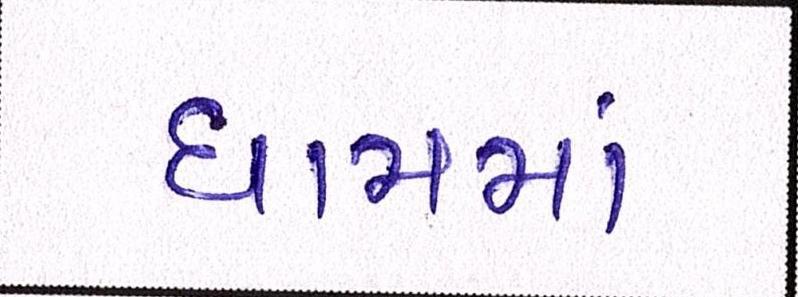 ધામમાં